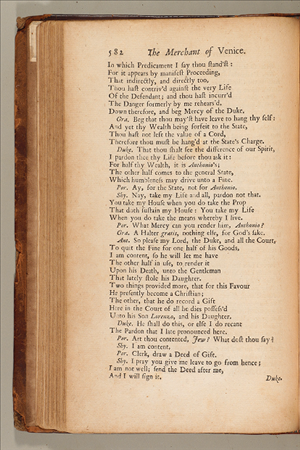 582 The Merchant of Venice.
In which Predicament I say thou stand'st:
For it appears by manifest Proceeding,
That indirectly, and directly too,
Thou hast contriv'd against the very Life
Of the Defendant; and thou hast incurr'd
The Danger formerly by me rehears'd.
Down therefore, and beg Mercy of the Duke.
Gra. Beg that thou may'st have leave to hang thy self:
And yet thy Wealth being forfeit to the State,
Thou hast not left the value of a Cord,
Therefore thou must be hang'd at the State's Charge.
Duke. That thou shalt see the difference of our Spirit,
I pardon thee thy Life before thou ask it:
For half thy Wealth, it is Anthonio's;
The other half comes to the general State,
Which humbleness may drive unto a Fine.
Por. Ay, for the State, not for Anthonio.
Shy. Nay, take my Life and all, pardon not that.
You take my House when you do take the Prop
That doth sustain my House: You take my Life
When you do take the means whereby I live.
Por. What Mercy can you render him, Anthonio?
Gra. A Halter gratis, nothing else, for God's sake.
Ant. So please my Lord, the Duke, and all the Court,
To quit the Fine for one half of his Goods,
I am content, so he will let me have
The other half in use, to render it
Upon his Death, unto the Gentleman
That lately stole his Daughter.
Two things provided more, that for this Favour
He presently become a Christian;
The other, that he do record a Gift
Here in the Court of all he dies possess'd
Unto his Son Lorenzo, and his Daughter.
Duke. He shall do this, or else I do recant
The Pardon that I late pronounced here.
Por. Art thou contented, Jew? What dost thou say?
Shy. I am content.
Por. Clerk, draw a Deed of Gift.
Shy. I pray you give me leave to go from hence;
I am not well; send the Deed after me,
And I will sign it.
Duke.